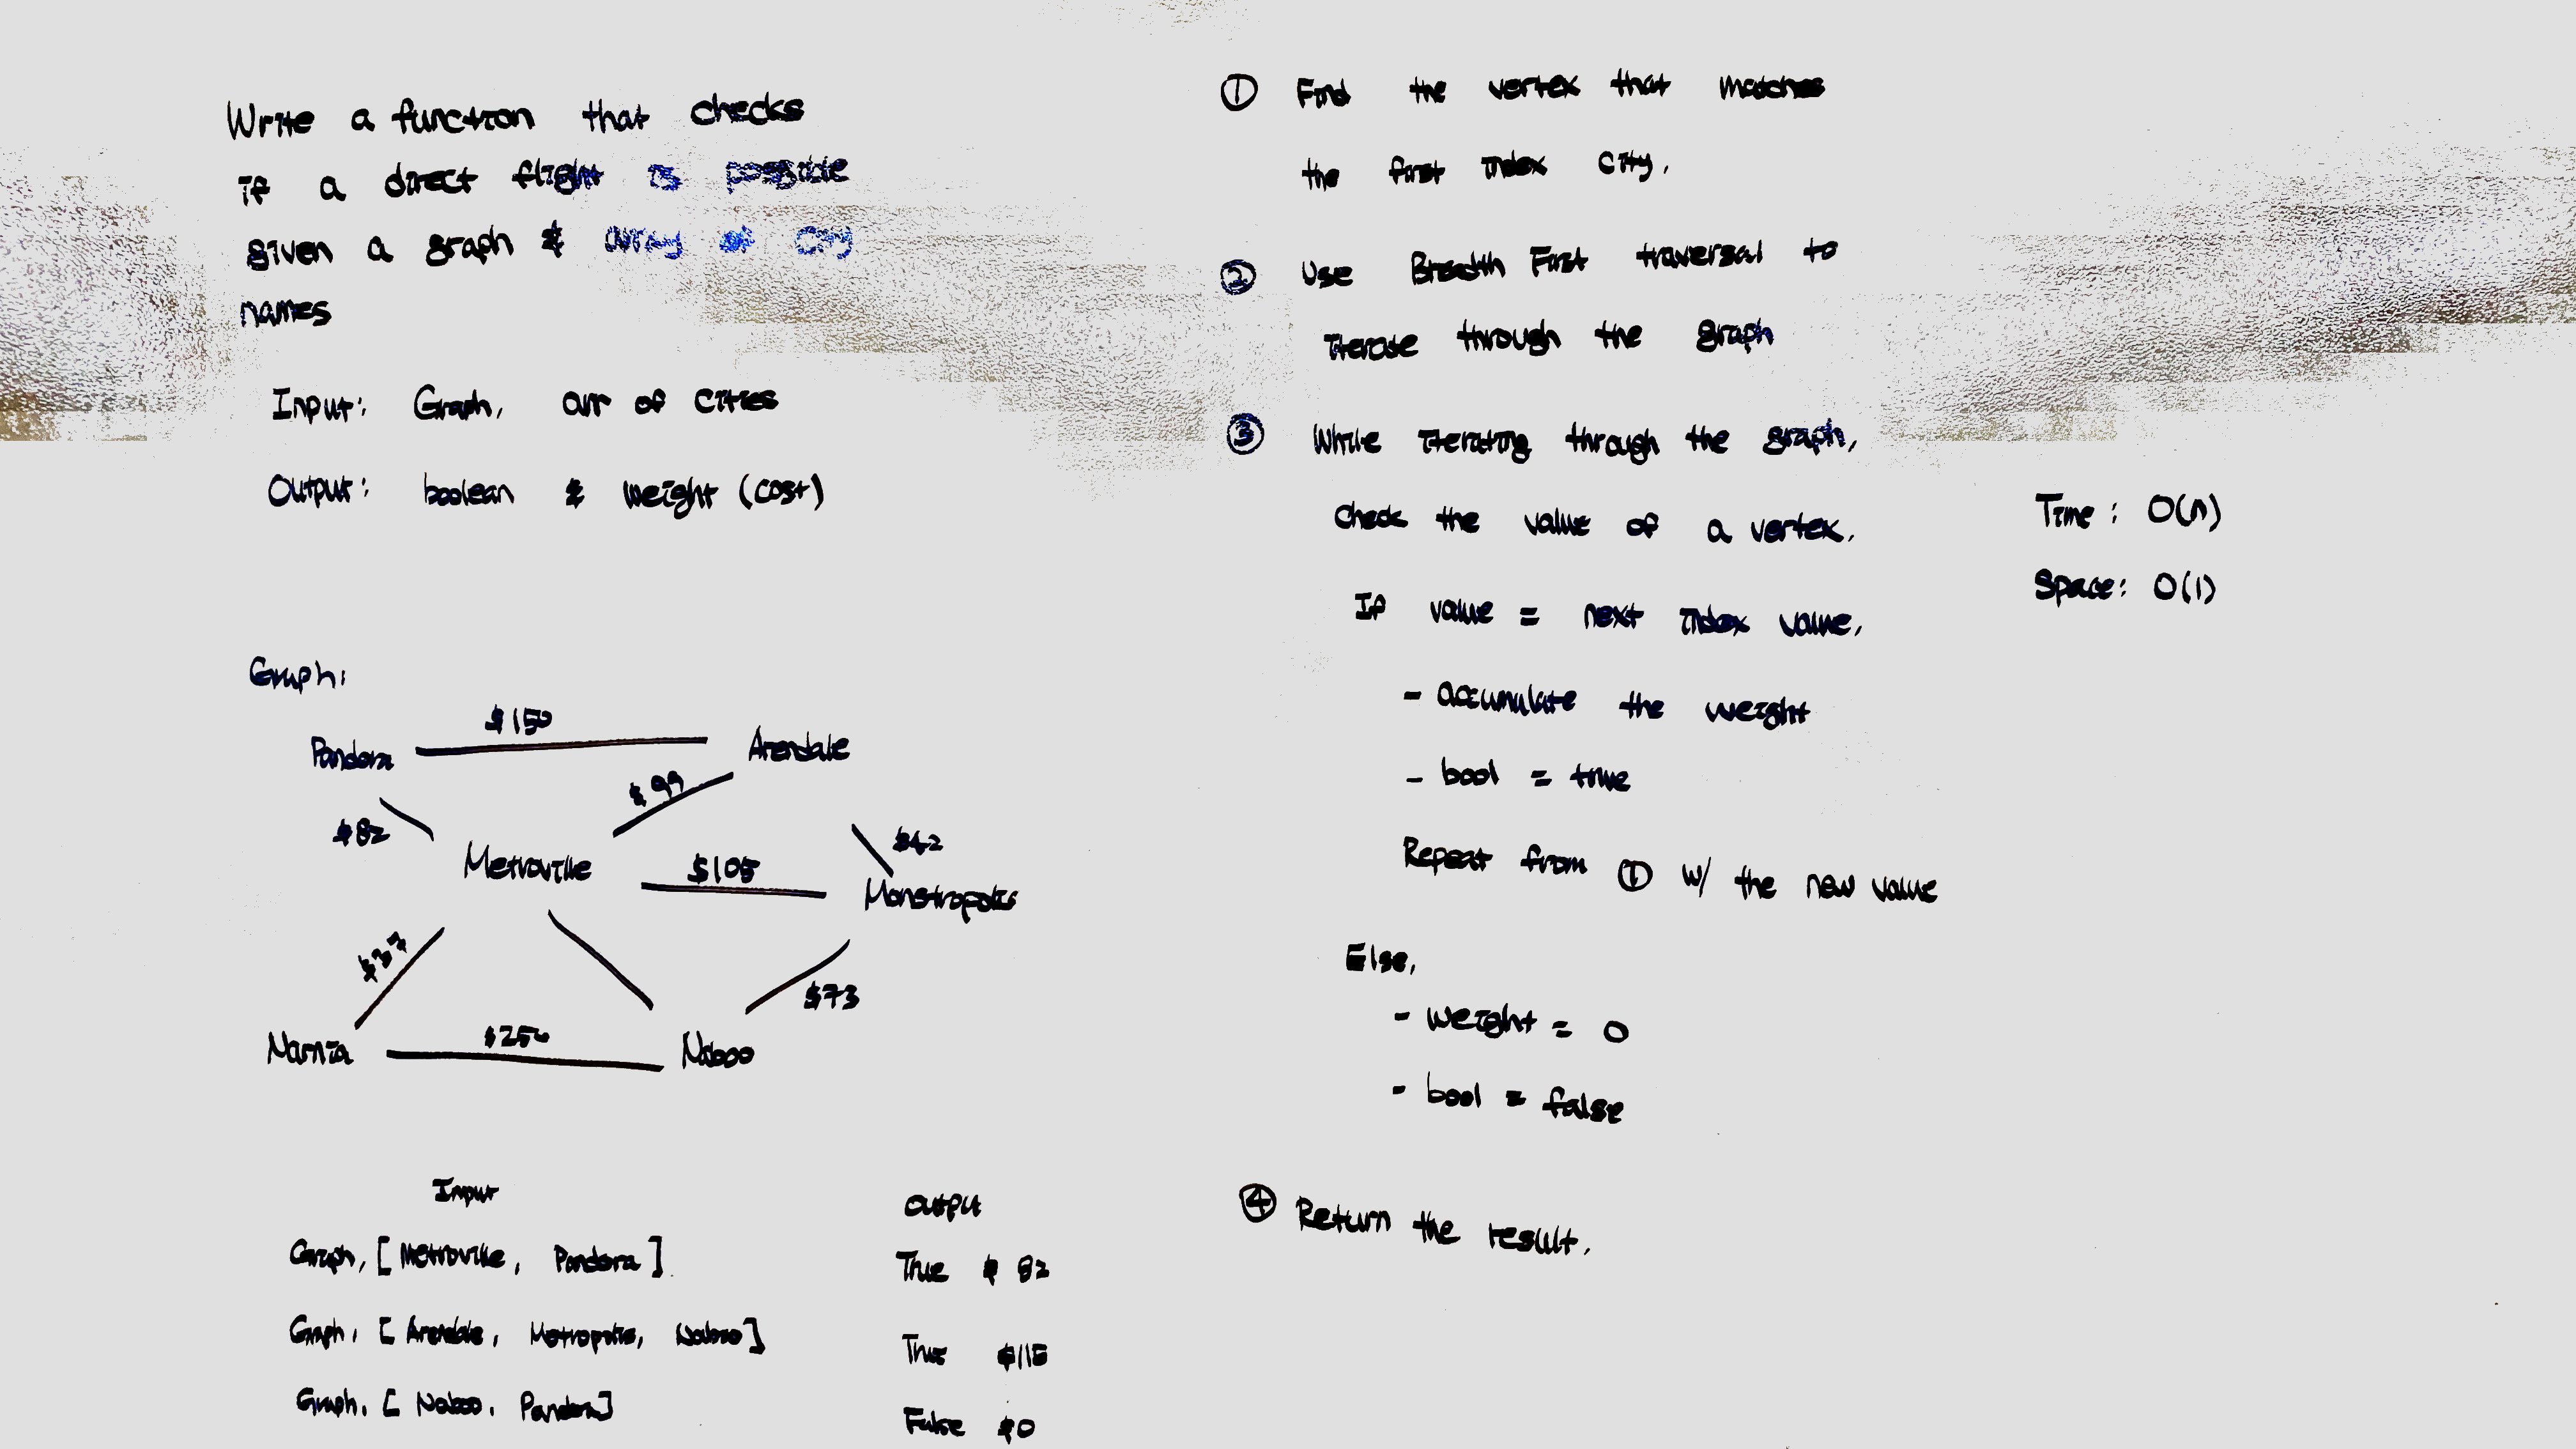 Write a function that checks
if a direct flight is possible
given a graph & array of city
names
Input: Graph, arr of cities
Output: boolean & weight (cost)
Graph:
$150
Pandora
Arendale
$99
$82
$42
Metroville
$105
Monstropolis
$37
$73
$250
Narnia
Naboo
Input
Output
Graph, [Metroville, Pandora]
True $82
Graph, [Arendale, Metropolis, Naboo]
True $115
Graph, [Naboo, Pandora]
False $0
① Find the vertex that matches
the first index city.
② Use Breadth First traversal to
iterate through the graph
③ While iterating through the graph,
check the value of a vertex.
If value = next index value,
- accumulate the weight
- bool = true
Repeat from ① w/ the new value
Else,
- weight = 0
- bool = false
④ Return the result.
Time: O(n)
Space: O(1)